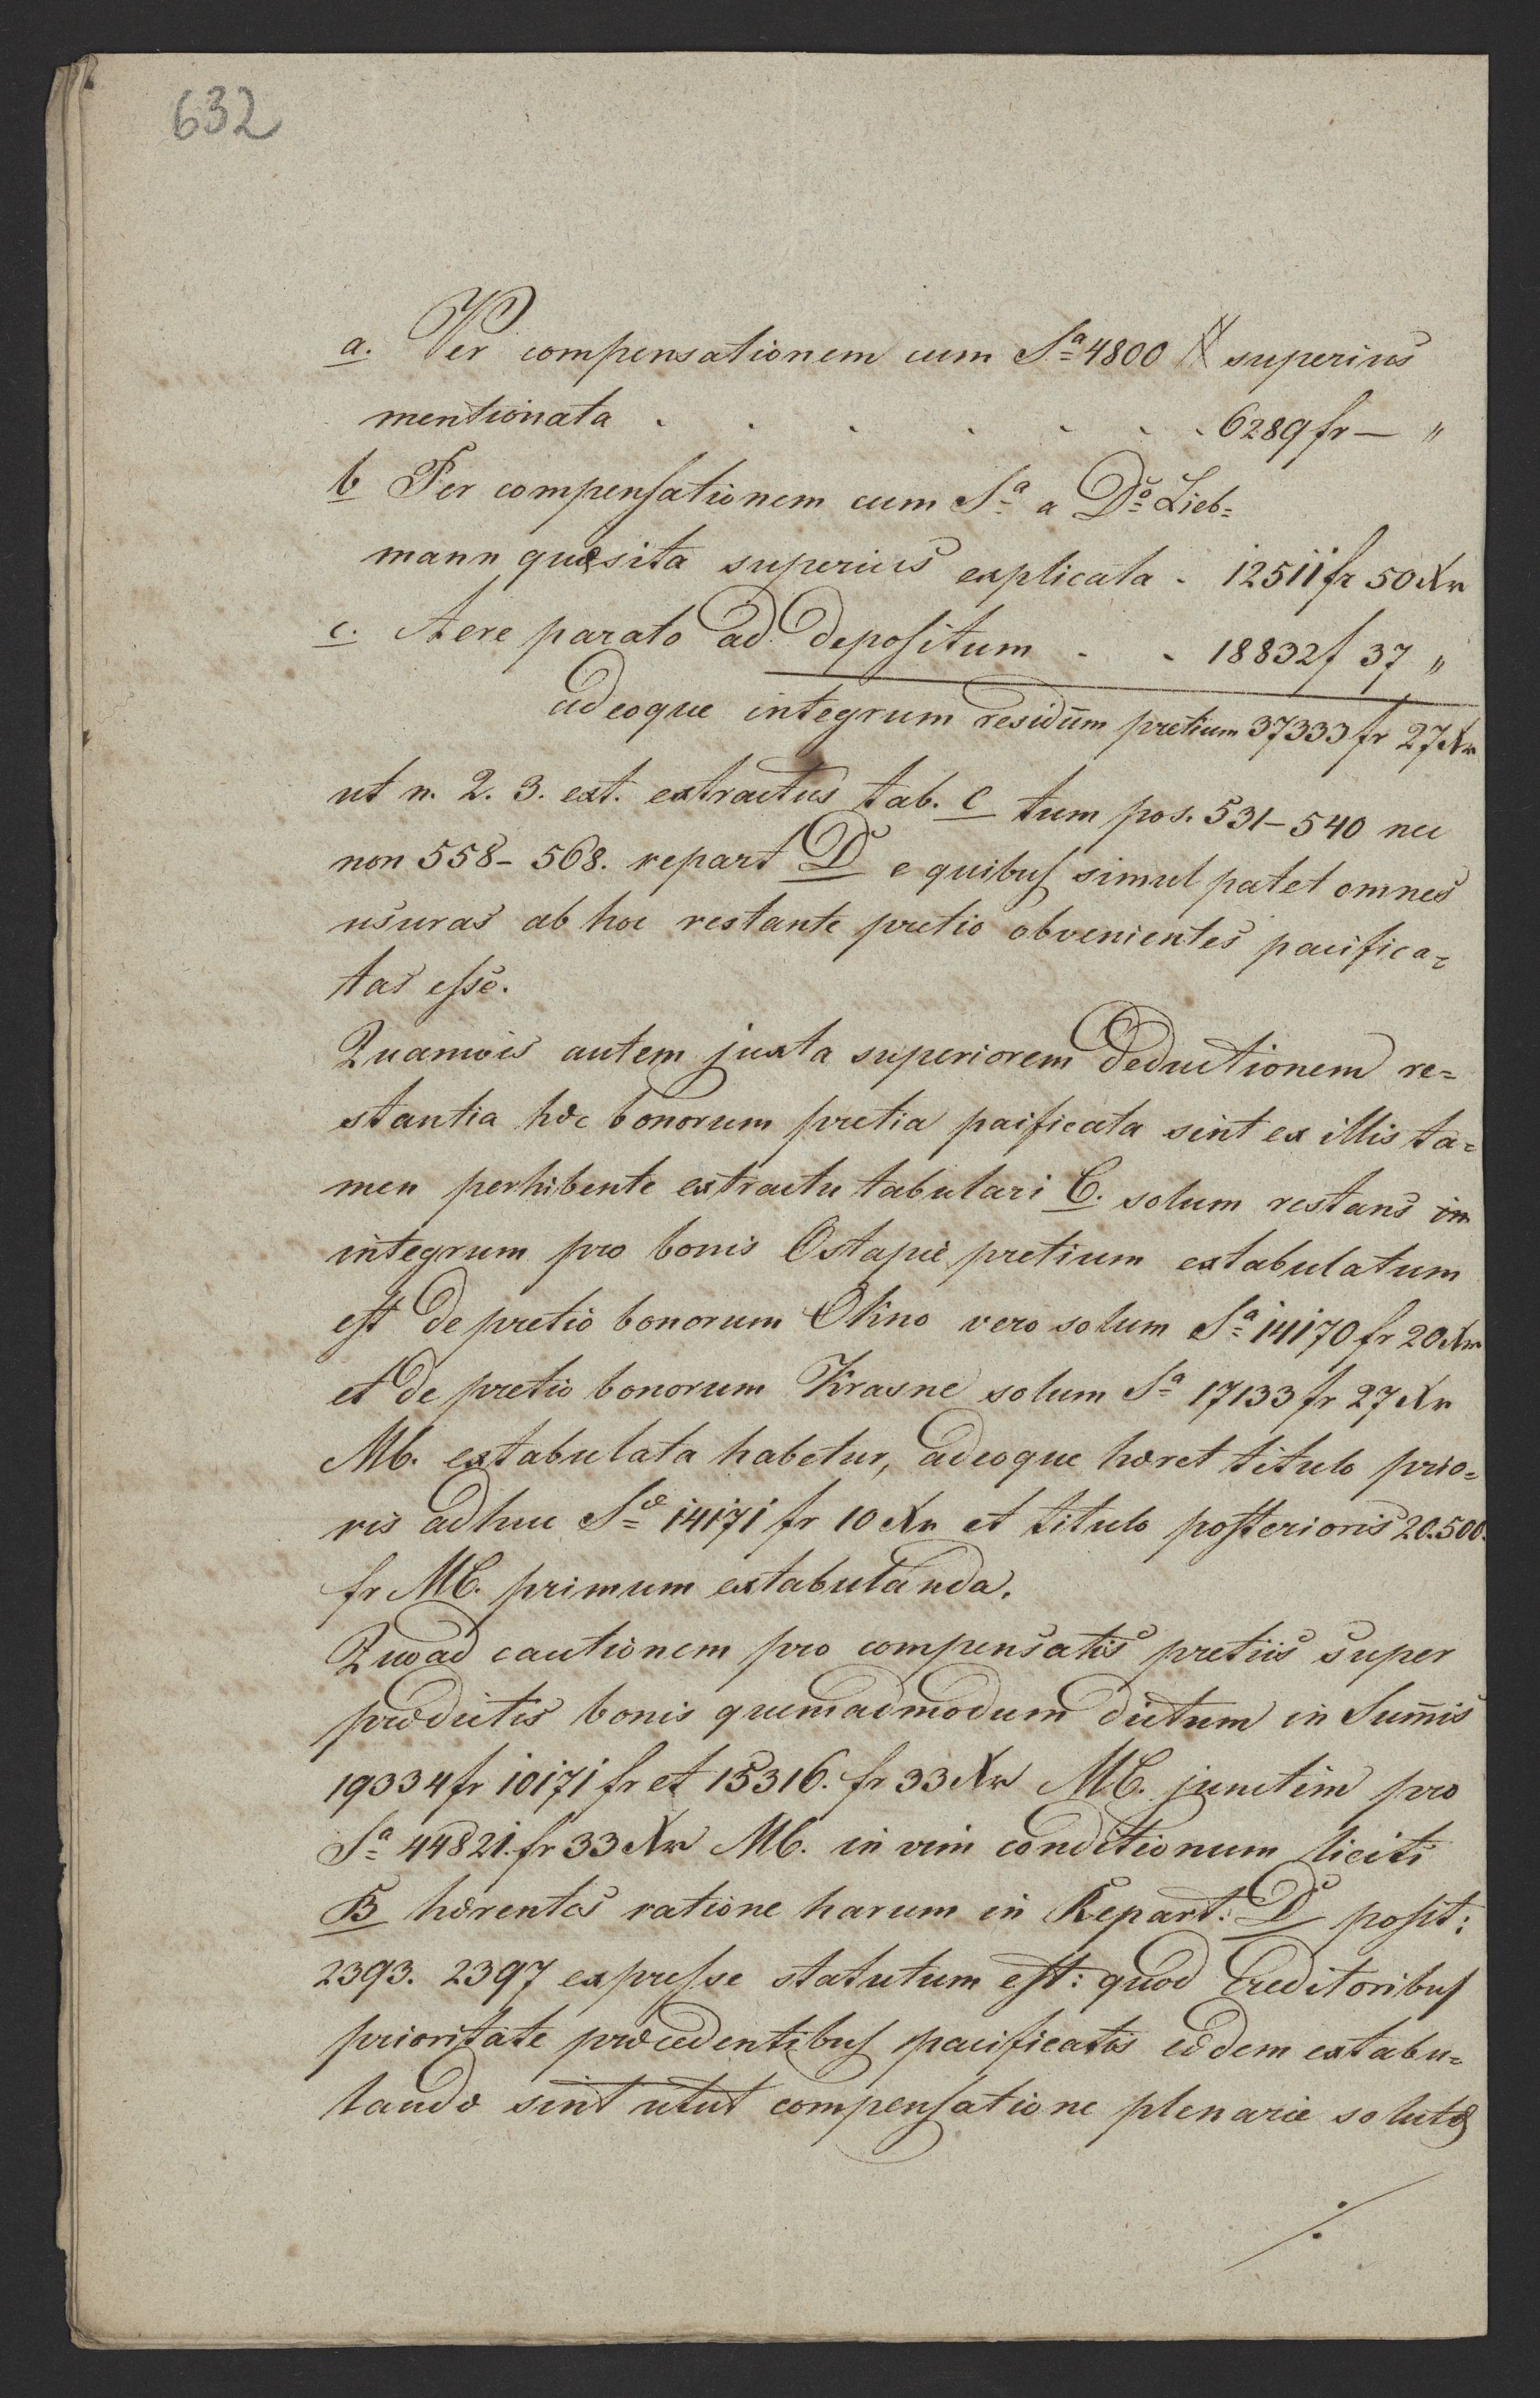 632
a. Per compensationem cum Sª 4800 # superius
mentionata . . . . . . . 6289 fr — "
b Per compensationem cum Sª a Do Lieb=
mann quæsita superius explicata . 12511 fr 50 Xr
c. Aere parato ad depositum . . 18832 f 37 "
adeoque integrum residuum pretium 37333 fr 27 Xr
ut n. 2. 3. ext. extractus tab. C tum pos. 531–540 nec
non 558–568. repart D e quibus simul patet omnes
usuras ab hoc restante pretio obvenientes pacifica=
tas esse.
Quamvis autem juxta superiorem deductionem re=
stantia hæc bonorum pretia pacificata sint ex illis ta=
men perhibente extractu tabulari C. solum restans in
integrum pro bonis Ostapie pretium extabulatum
est de pretio bonorum Okno vero solum Sª 14170 fr 20 Xr
et de pretio bonorum Krasne solum Sª 17133 fr 27 Xr
MC. extabulata habetur, adeoque hæret titulo prio=
ris adhuc Sæ 14171 fr 10 Xr et titulo posterioris 20.500.
fr MC. primum extabulanda.
Quoad cautionem pro compensatis pretiis super
prædictis bonis quemadmodum dictum in Summis
19334 fr 10171 fr et 15316. fr 33 Xr MC. junctim pro
Sª 44821. fr 33 Xr MC. in vim conditionum liciti
B hærentes ratione harum in Repart: D posit:
2393. 2397 expresse statutum est: quod Creditoribus
prioritate præcedentibus pacificatis eædem extabu=
landæ sint utut compensatione plenarie solutæ
./.